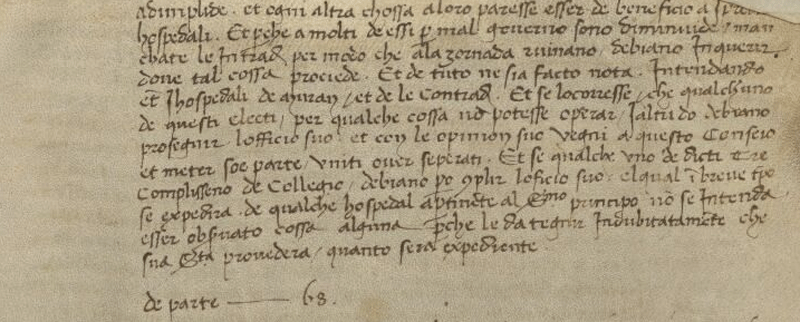 adimplide. et ogni altra chossa a loro paresse esser de beneficio a
hospedali. Et perche a molti de essi p mal governo sono diminuide / man
chate le Intrad per modo che ala zornada ruinano, debiano Inquerir
dove tal cossa prociede. Et de tuto ne sia facto nota. Intendando
et I hospedali de muran / et de le Contrad. Et se locorresse, che qualchuno
de questi electi, per qualche cossa no potesse operar, I altri do debiano
proseguir lofficio suo. et con le opinion suo vegnir a questo Conseio
et meter soe parte, uniti over seperati. Et se qualche uno de dicti tre
Complisseno de Collegio, debiano po complir loficio suo. el qual i breve tpo
se expedira. de qualche hospedal aptinete al principo no se Intenda
esser obsvato cossa alguna pche le da tegnir Indubitatamete che
sua provedera, quanto sera expediente.
de parte — 68.